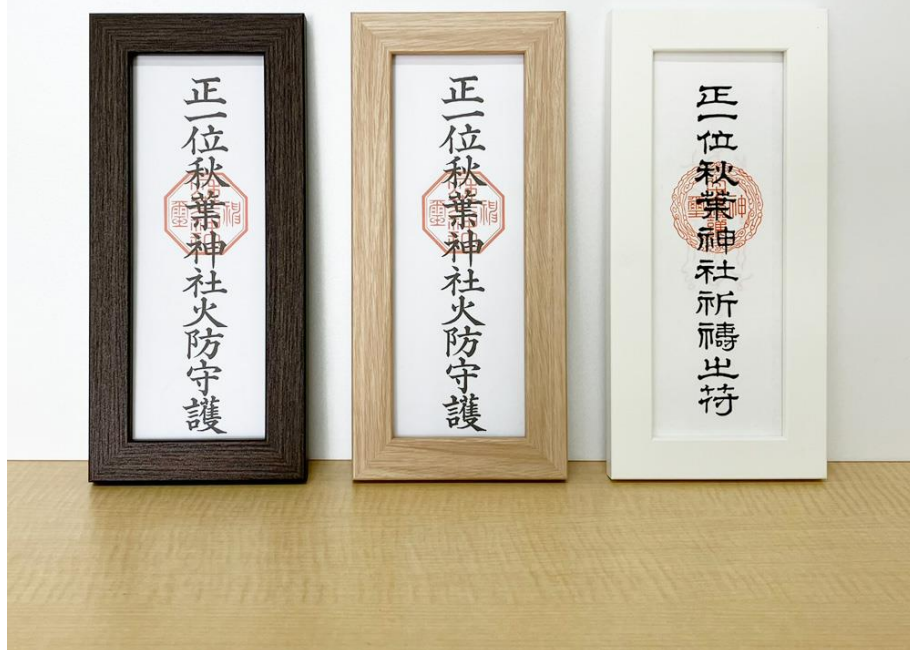 正一位秋葉神社火防守護
正一位秋葉神社火防守護
正一位秋葉神社祈禱之符